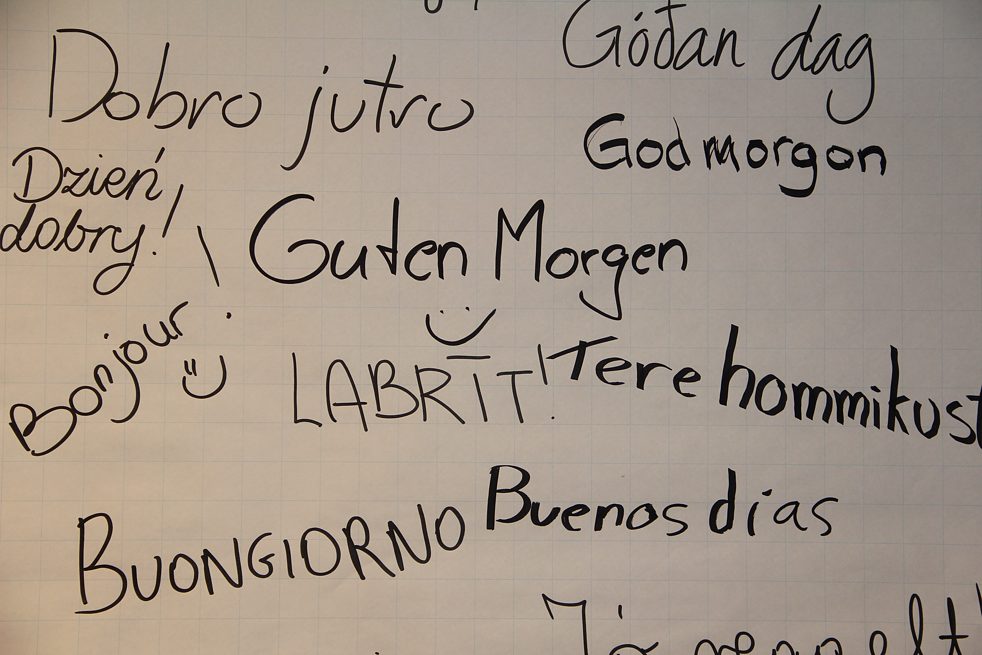 Góðan dag
Dobro jutro
God morgon
Dzień
dobry!
Guten Morgen
Bonjour!
LABRĪT!
Tere hommikust
Buenos días
BUONGIORNO